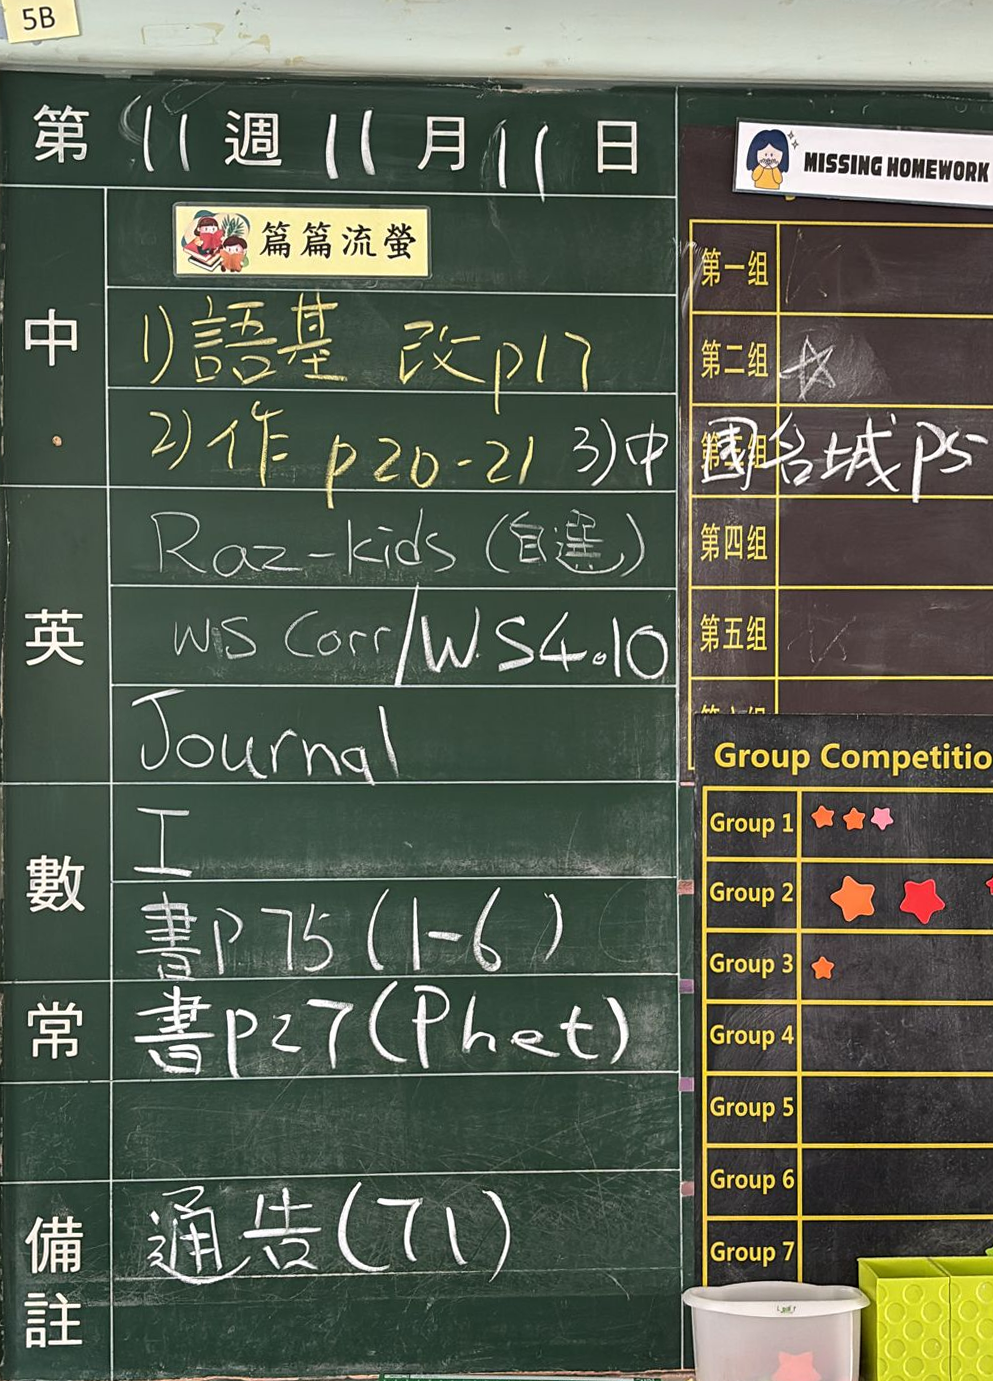 5B
第11週11月11日
中
篇篇流螢
1)語基 改p17
2)作 p20-21 3)中圍台城p5
英
Raz-kids (自選)
WS Corr/WS4.10
Journal
數
工
書P75(1-6)
常
書p27(Phet)
備註
通告(71)
MISSING HOMEWORK
第一组
第二组
第四组
第五组
Group Competitio
Group 1
Group 2
Group 3
Group 4
Group 5
Group 6
Group 7